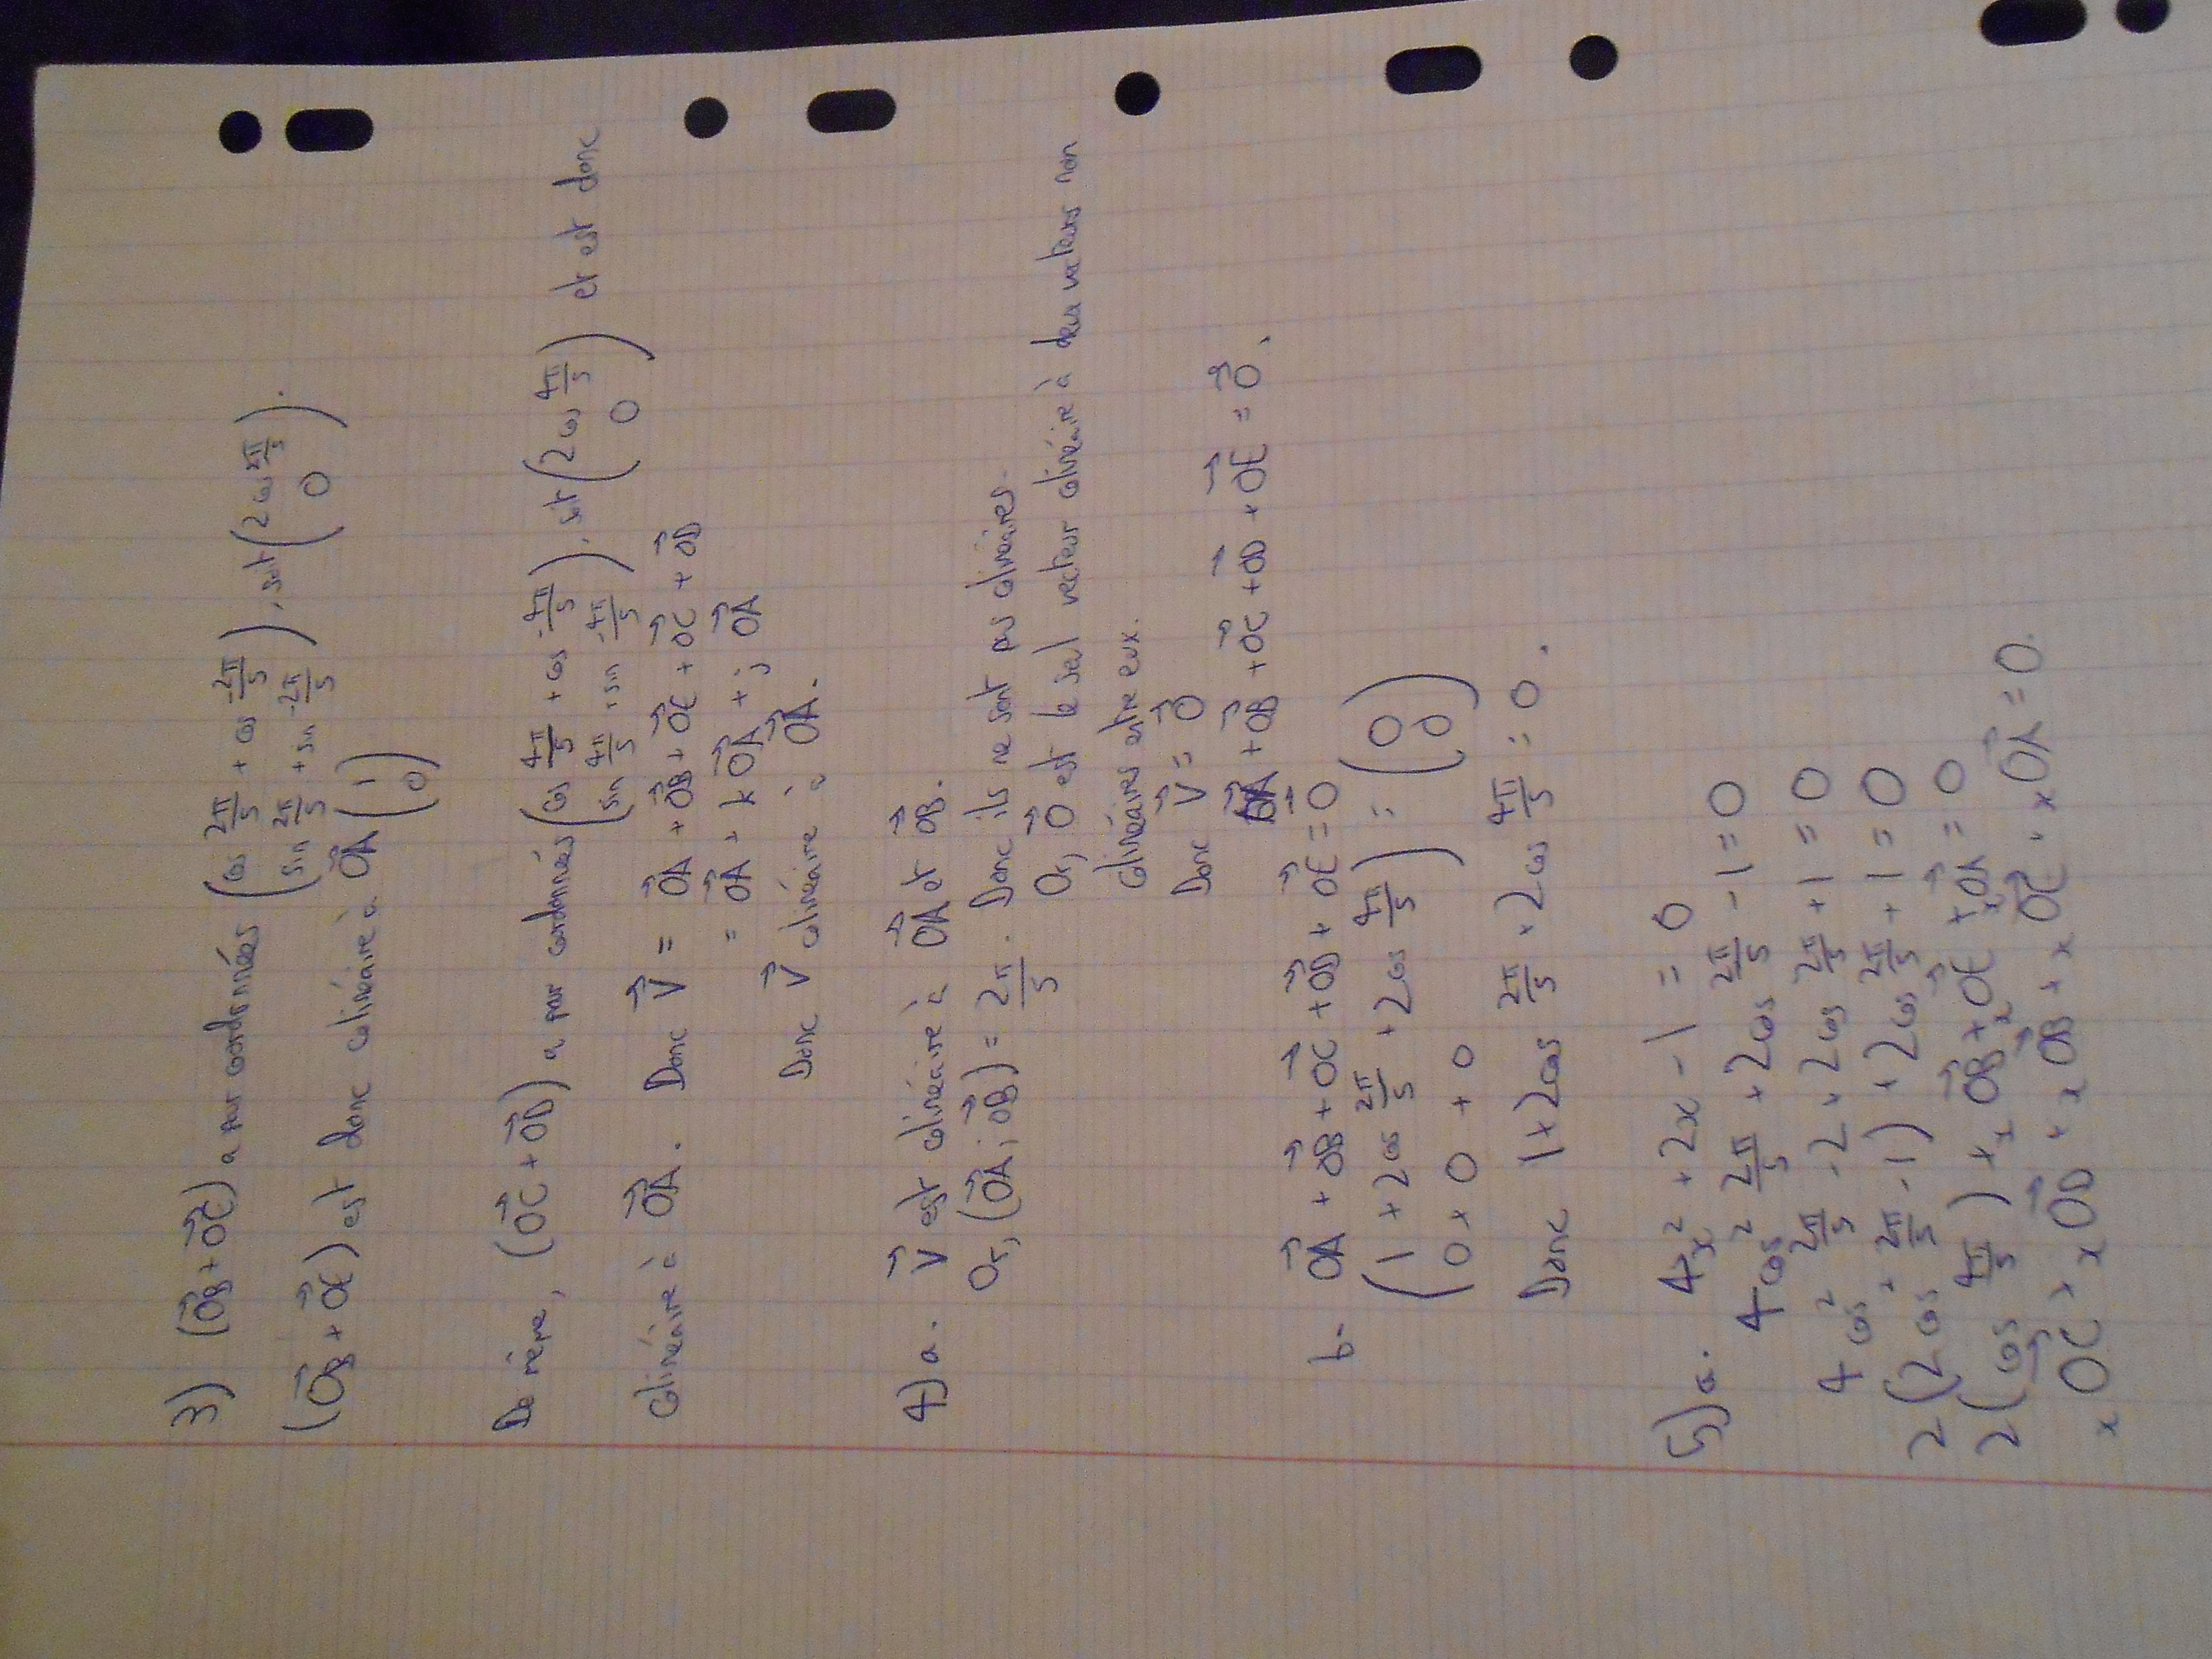 3) (OB⃗ + OC⃗) a pour coordonnées (cos 2π/5 + cos -2π/5 ; sin 2π/5 + sin -2π/5), soit (2cos 2π/5 ; 0).
(OB⃗ + OE⃗) est donc colinéaire à OA⃗ (1 ; 0)
De même, (OC⃗ + OD⃗) a pour coordonnées (cos 4π/5 + cos -4π/5 ; sin 4π/5 + sin -4π/5), soit (2cos 4π/5 ; 0) et est donc
colinéaire à OA⃗. Donc V⃗ = OA⃗ + OB⃗ + OE⃗ + OC⃗ + OD⃗
= OA⃗ + k OA⃗ + j OA⃗
Donc V⃗ colinéaire à OA⃗.
4) a. V⃗ est colinéaire à OA⃗ et OB⃗.
Or, (OA⃗ ; OB⃗) = 2π/5. Donc ils ne sont pas colinéaires.
Or, O⃗ est le seul vecteur colinéaire à deux vecteurs non
colinéaires entre eux.
Donc V⃗ = O⃗
OA⃗ + OB⃗ + OC⃗ + OD⃗ + OE⃗ = O⃗.
b- OA⃗ + OB⃗ + OC⃗ + OD⃗ + OE⃗ = O⃗
(1 + 2cos 2π/5 + 2cos 4π/5 ; 0 + 0 + 0) = (0 ; 0)
Donc 1 + 2cos 2π/5 + 2cos 4π/5 = 0.
5) a. 4x² + 2x - 1 = 0
4cos² 2π/5 + 2cos 2π/5 - 1 = 0
4cos² 2π/5 - 2 + 2cos 2π/5 + 1 = 0
2(2cos² 2π/5 - 1) + 2cos 2π/5 + 1 = 0
2(cos 4π/5) + x OB⃗ + x OE⃗ + x OA⃗ = 0
x OC⃗ + x OD⃗ + x OB⃗ + x OE⃗ + x OA⃗ = 0.